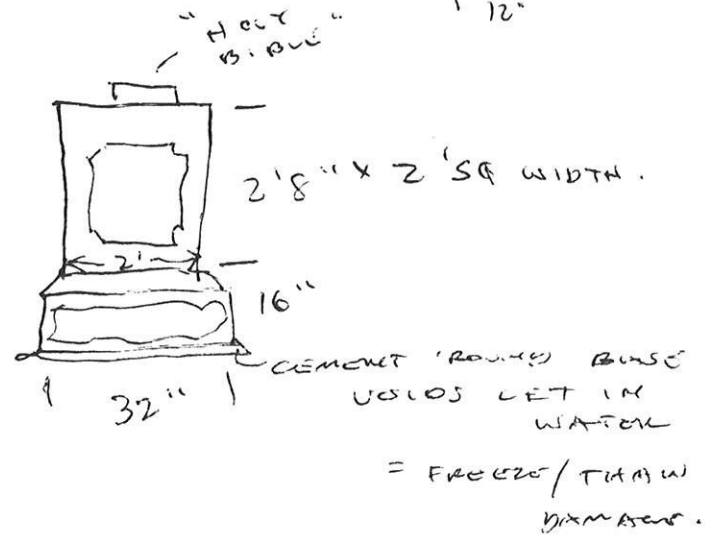 12"
"HOLY
BIBLE"
2'8" X 2'SQ WIDTH.
2'
16"
32"
CEMENT 'ROUND BASE
VOIDS LET IN
WATER
= FREEZE/THAW
DAMAGE.